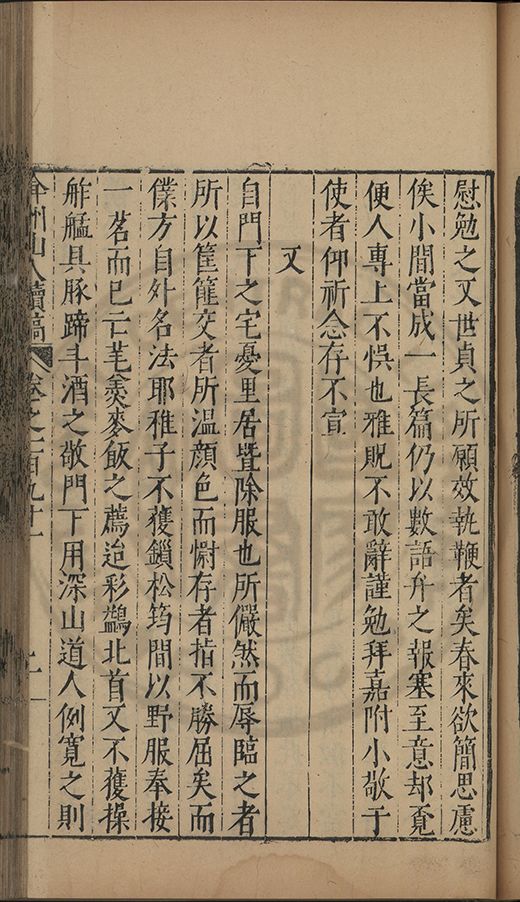 慰勉之又世貞之所願效執鞭者矣春來欲簡思慮
俟小間當成一長篇仍以數語弁之報塞至意却覔
便人專上不悞也雅貺不敢辭謹勉拜嘉附小敬于
使者仰祈念存不宣
又
自門下之宅憂里居曁除服也所儼然而辱臨之者
所以筐篚交者所温顏色而慰存者指不勝屈矣而
僕方自外名法耶稚子不獲鎖松筠間以野服奉接
一茗而已亡芼羮麥飯之薦迨彩鷁北首又不獲操
舴艋具豚蹄斗酒之敬門下用深山道人例寬之則
弇州山人續稿 卷之一百九十一